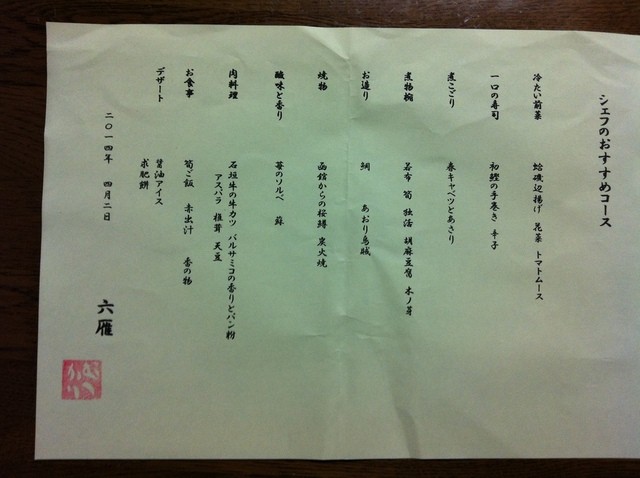 シェフのおすすめコース
冷たい前菜 蛤磯辺揚げ 花菜 トマトムース
一口の寿司 初鰹の手巻き 辛子
煮こごり 春キャベツとあさり
煮物椀 若布 筍 独活 胡麻豆腐 木ノ芽
お造り 鯛 あおり烏賊
焼物 函館からの桜鱒 炭火焼
酸味と香り 苺のソルベ 蘇
肉料理 石垣牛の牛カツ バルサミコの香りとパン粉
アスパラ 椎茸 天豆
お食事 筍ご飯 赤出汁 香の物
デザート 醤油アイス
求肥餅
二〇一四年 四月二日
六雁
むつかり